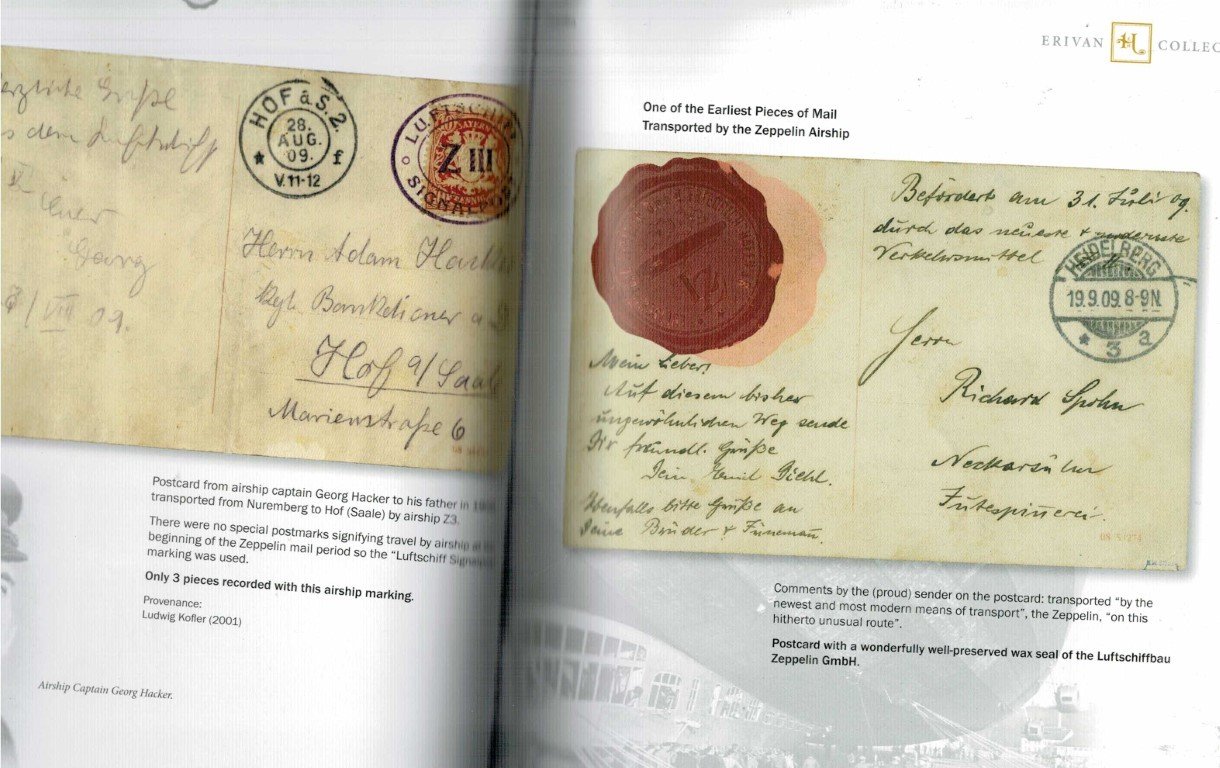 Grüße
HOF a.S. 2.
28.
AUG.
09.
V.11-12
f
LUFTSCHIFF
BAYERN
Z III
SIGNALPOST
Herrn Adam
Kgl. Bankdiener a
Hof a/ Saale
Marienstraße 6
Georg
VIII 09.
Postcard from airship captain Georg Hacker to his father in
transported from Nuremberg to Hof (Saale) by airship Z3.
There were no special postmarks signifying travel by airship at
beginning of the Zeppelin mail period so the "Luftschiff
marking was used.
Only 3 pieces recorded with this airship marking.
Provenance:
Ludwig Kofler (2001)
Airship Captain Georg Hacker.
ERIVAN H COLLEC
One of the Earliest Pieces of Mail
Transported by the Zeppelin Airship
Befördert am 31. Juli 09.
durch das neueste + modernste
Verkehrsmittel
HEIDELBERG
19.9.09.8-9N.
* 3 a
Herrn
Richard Spohn
Neckarsulm
Jutespinnerei.
Mein Lieber!
Auf diesem bisher
ungewöhnlichen Weg sende
Dir freundl. Grüße
Dein Emil Diehl.
Ebenfalls bitte Grüße an
Deine Brüder +
Comments by the (proud) sender on the postcard: transported "by the
newest and most modern means of transport", the Zeppelin, "on this
hitherto unusual route".
Postcard with a wonderfully well-preserved wax seal of the Luftschiffbau
Zeppelin GmbH.